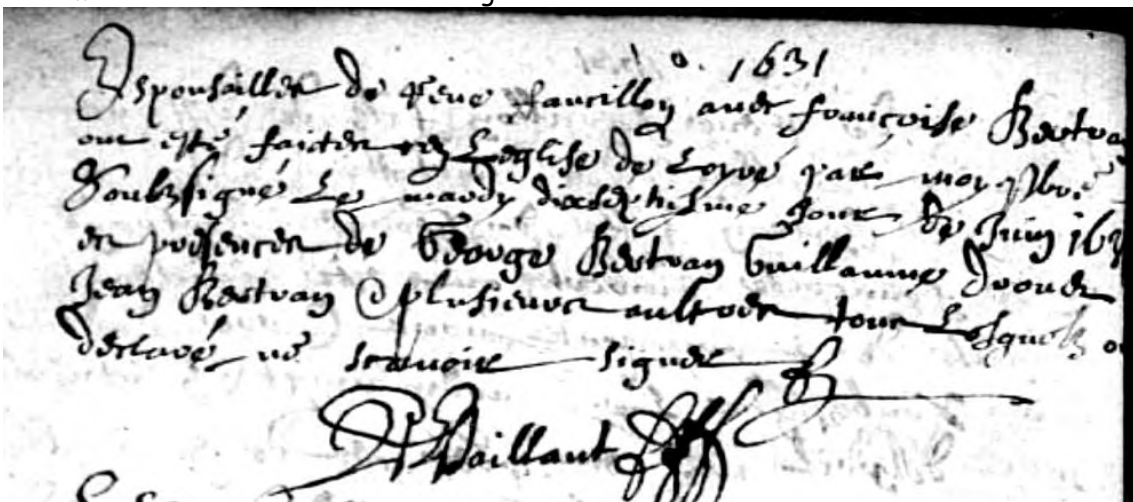 1631
Espousailles de René faucillon avec françoise Bertra
ont esté faictes en Leglise de Loyré par moy pbre
Soubzsigné Le mardy dixseptisme Jour de Juin 163
es presences de George Bertran Guillaume Drouet
Jean Bertran & plusieurs aultres tous Lesquelz on
declaré ne scavoir signer
Vaillant